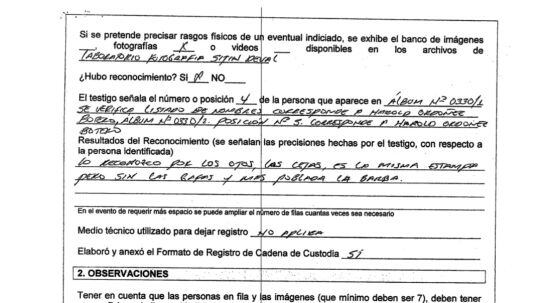 Si se pretende precisar rasgos físicos de un eventual indiciado, se exhibe el banco de imágenes
___, fotografías X o videos ___ disponibles en los archivos de
LABORATORIO FOTOGRAFIA SITIN DEVAL
¿Hubo reconocimiento? SI X NO___
El testigo señala el número o posición 4 de la persona que aparece en ÁLBUM Nº 0330/1
SE VERIFICA LISTADO DE NOMBRES CORRESPONDE A HAROLD ORDOÑEZ
BOTERO, ALBUM Nº 0330/2. POSICIÓN Nº 5. CORRESPONDE A HAROLD ORDOÑEZ
BOTERO
Resultados del Reconocimiento (se señalan las precisiones hechas por el testigo, con respecto a
la persona identificada)
LO RECONOZCO POR LOS OJOS, LAS CEJAS, ES LA MISMA ESTAMPA
PERO SIN LAS GAFAS Y MAS POBLADA LA BARBA.
En el evento de requerir más espacio se puede ampliar el número de filas cuantas veces sea necesario
Medio técnico utilizado para dejar registro NO APLICA
Elaboró y anexó el Formato de Registro de Cadena de Custodia SI
2. OBSERVACIONES
Tener en cuenta que las personas en fila y las imágenes (que mínimo deben ser 7), deben tener